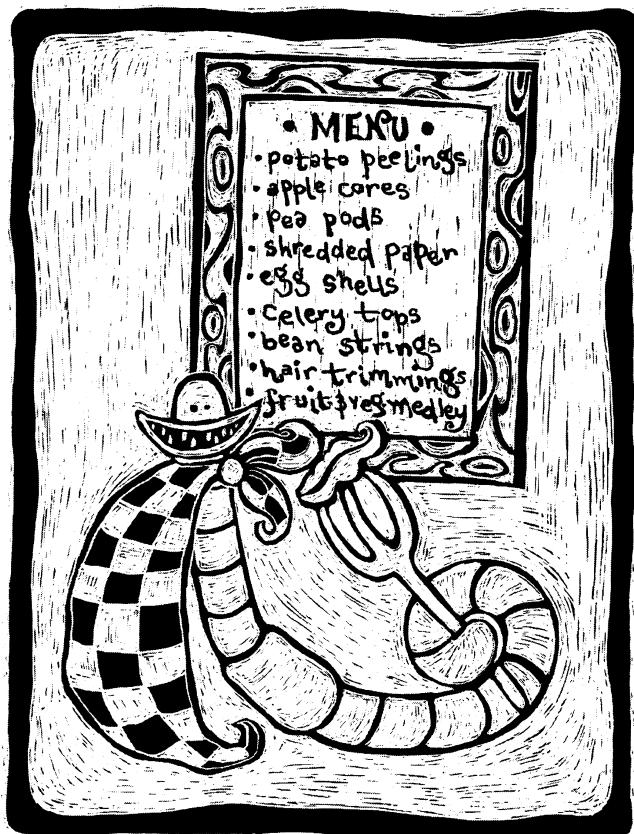 • MENU •
• potato peelings
• apple cores
• pea pods
• shredded paper
• egg shells
• celery tops
• bean strings
• hair trimmings
• fruit & veg medley